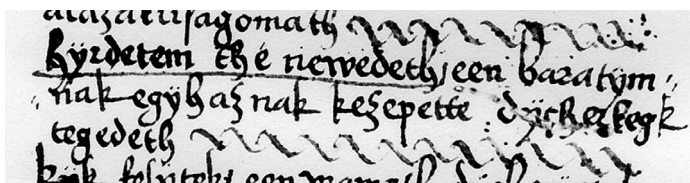 alazatusagomath
hyrdetem the newedeth, een baratym
nak egyhaznak kezepette dyckerkegk
tegedeth
kyk
een